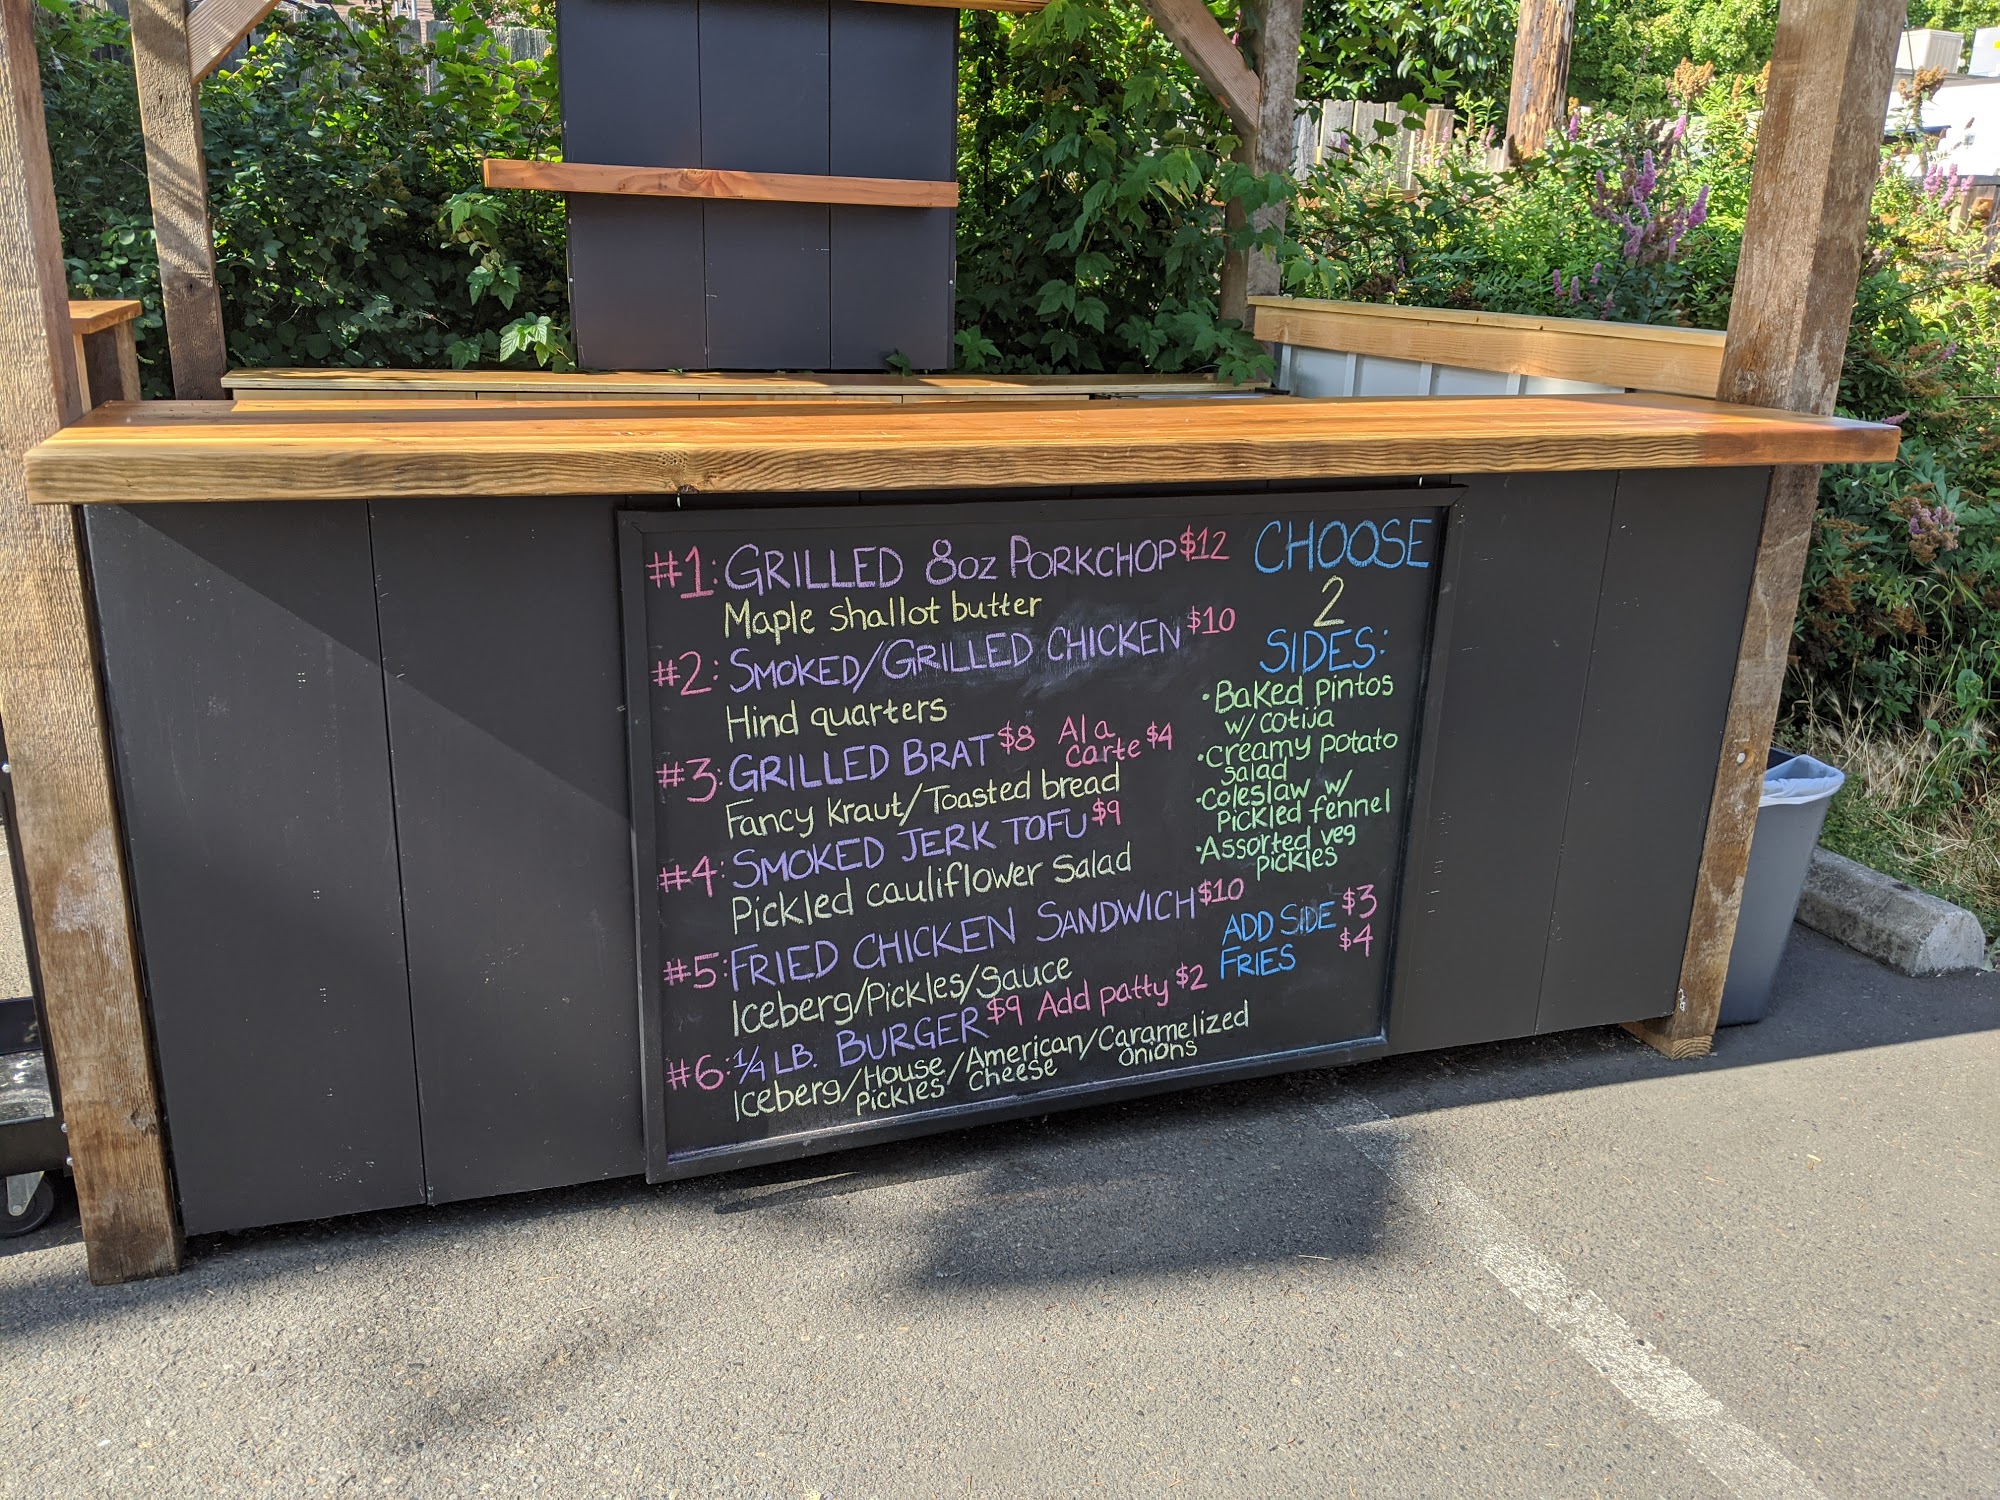 #1: GRILLED 8oz PORKCHOP $12
Maple shallot butter
#2: SMOKED/GRILLED CHICKEN $10
Hind quarters
#3: GRILLED BRAT $8 Al a
carte $4
Fancy Kraut/Toasted bread
#4: SMOKED JERK TOFU $9
Pickled cauliflower salad
#5: FRIED CHICKEN SANDWICH $10
Iceberg/Pickles/Sauce
#6: 1/4 LB. BURGER $9 Add patty $2
Iceberg/House/American/Caramelized
Pickles Cheese onions
CHOOSE
2
SIDES:
• Baked pintos
w/ cotija
• creamy potato
salad
• Coleslaw w/
Pickled fennel
• Assorted veg
pickles
ADD SIDE $3
FRIES $4